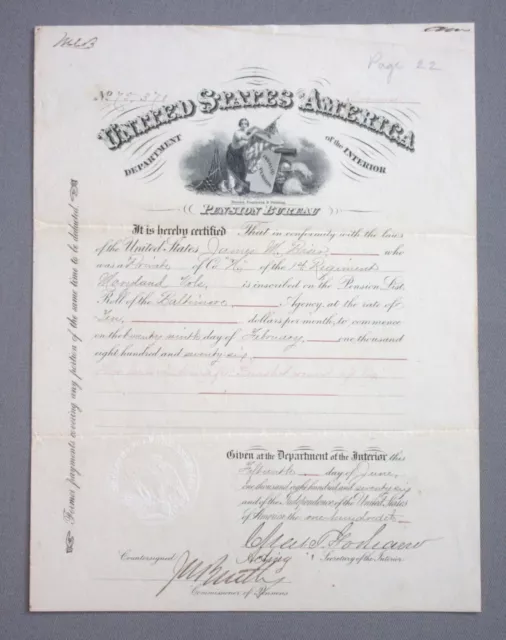 McB
Page 22
No 75,371
UNITED STATES of AMERICA
DEPARTMENT of the INTERIOR
PENSION BUREAU
It is hereby certified That in conformity with the laws
of the United States James W. who
was a Private of Co K, of the 1st Regiment
Maryland Vols, is inscribed on the Pension List
Roll of the Baltimore Agency, at the rate of
Ten dollars per month, to commence
on the twenty ninth day of February, one thousand
eight hundred and seventy six.
Given at the Department of the Interior this
Fifteenth day of June,
one thousand eight hundred and seventy six
and of the Independence of the United States
of America the one hundredth
Chas T. Gorham
Acting Secretary of the Interior
Countersigned
Commissioner of Pensions
Former payments covering any portion of the same time to be deducted.